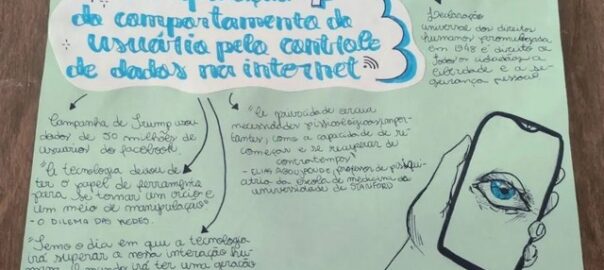 do comportamento do
usuário pelo controle
de dados na internet
Declaração
universal dos direitos
humanos promulgada
em 1948 é direito de
todos cidadãos a
liberdade e a se-
gurança pessoal
Campanha de Trump usou
dados de 50 milhões de
usuários do facebook
"A tecnologia deixou de
ter o papel de ferramenta
para se tornar um vício e
um meio de manipulação"
- O DILEMA DAS REDES.
"Temo o dia em que a tecnologia
irá superar a nossa interação hu-
mana. O mundo irá ter uma geração
"A privacidade
necessidades psicológicas impor-
tantes, como a capacidade de re-
começar e se recuperar de
contratempos"
- ELIAS ABOUJAOUDE, professor de psiqui-
atria da escola de medicina da
universidade de STANFORD